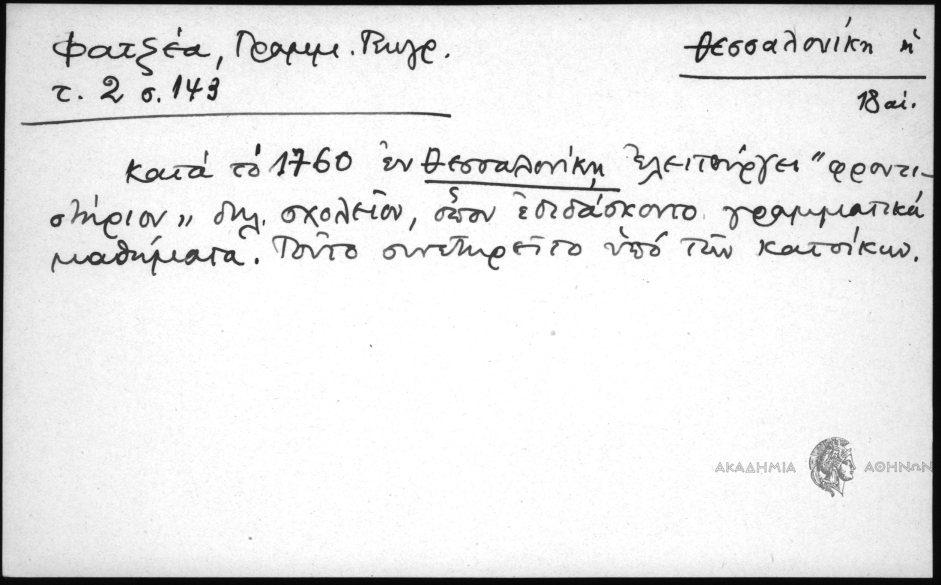 Φατζέα, Γραμμ. Γεωγρ.
τ. 2 σ. 143
Θεσσαλονίκη ἡ
18 αἰ.
Κατά τό 1760 ἐν Θεσσαλονίκῃ ἐλειτούργει "φροντι-
στήριον" δηλ. σχολεῖον, ὅπου ἐδιδάσκοντο γραμματικά
μαθήματα. Τοῦτο συνετηρεῖτο ὑπό τῶν κατοίκων.
ΑΚΑΔΗΜΙΑ ΑΘΗΝΩΝ